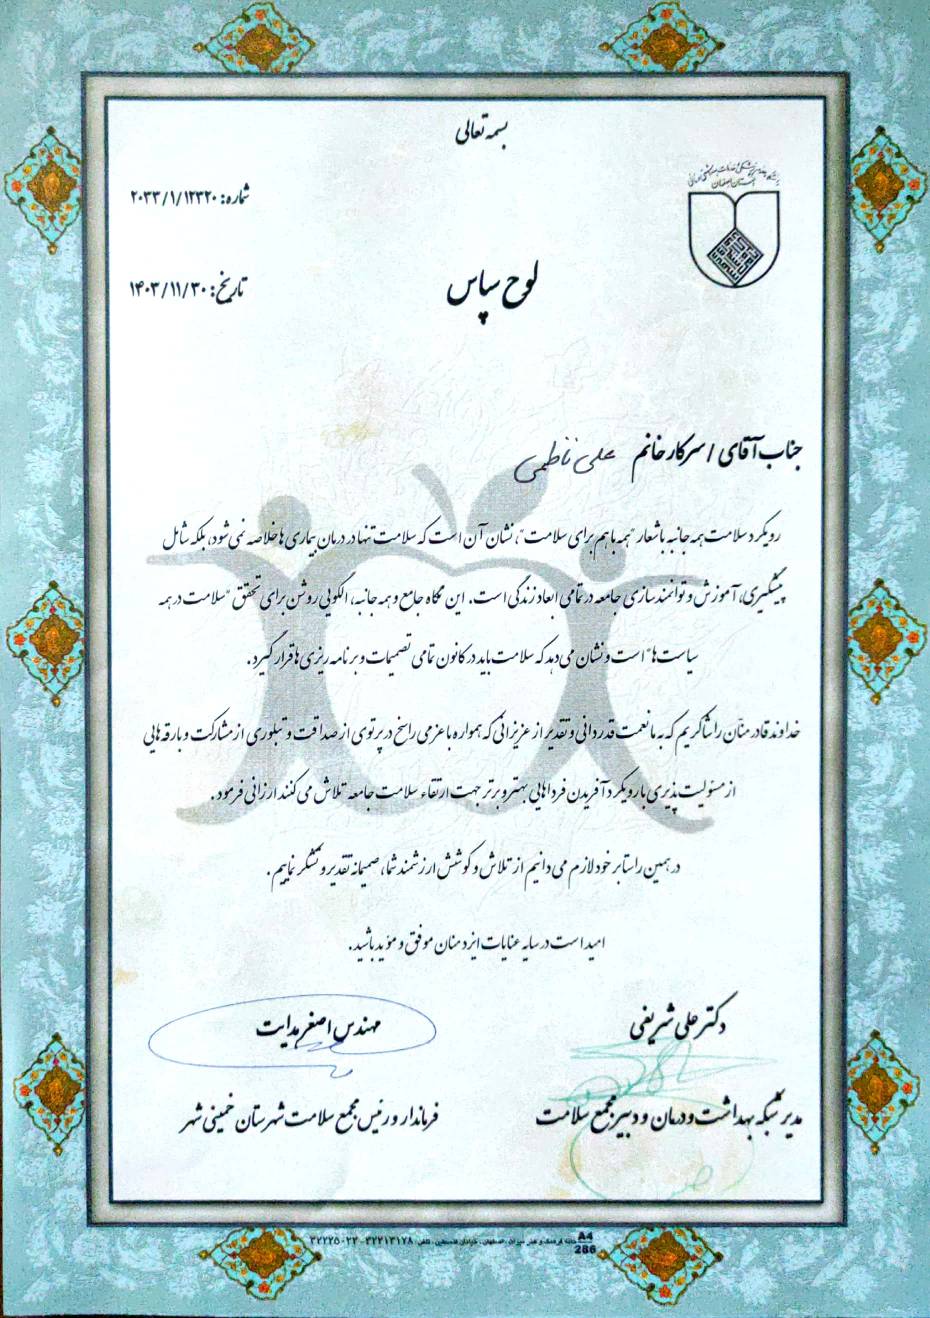 بسمه تعالی
دانشگاه علوم پزشکی و خدمات بهداشتی درمانی
استان اصفهان
شماره: ۲۰۳۳/۱/۱۲۳۲۰
تاریخ: ۱۴۰۳/۱۱/۳۰
لوح سپاس
جناب آقای / سرکار خانم علی ناظمی
رویکرد سلامت همه جانبه با شعار "همه با هم برای سلامت"، نشان آن است که سلامت تنها در درمان بیماری ها خلاصه نمی شود، بلکه شامل
پیشگیری، آموزش و توانمندسازی جامعه در تمامی ابعاد زندگی است. این نگاه جامع و همه جانبه، الگویی روشن برای تحقق "سلامت در همه
سیاست ها" است و نشان می دهد که سلامت باید در کانون تمامی تصمیمات و برنامه ریزی ها قرار گیرد.
خداوند قادر منّان را شاکریم که به ما نعمت قدردانی و تقدیر از عزیزانی که همواره با عزمی راسخ در پرتوی از صداقت و تبلوری از مشارکت و بارقه هایی
از مسئولیت پذیری با رویکرد آفریدن فرداهایی بهتر و برتر جهت ارتقاء سلامت جامعه تلاش می کنند ارزانی فرمود.
در همین راستا بر خود لازم می دانیم از تلاش و کوشش ارزشمند شما، صمیمانه تقدیر و تشکر نماییم.
امید است در سایه عنایات ایزد منان موفق و مؤید باشید.
دکتر علی شریفی
مدیر شبکه بهداشت و درمان و دبیر مجمع سلامت
مهندس اصغر هدایت
فرماندار و رئیس مجمع سلامت شهرستان خمینی شهر
A4
286
خانه فرهنگ و هنر میراث، اصفهان، خیابان فلسطین، تلفن: ۳۲۲۱۳۱۷۸-۳۲۲۲۵۰۲۲